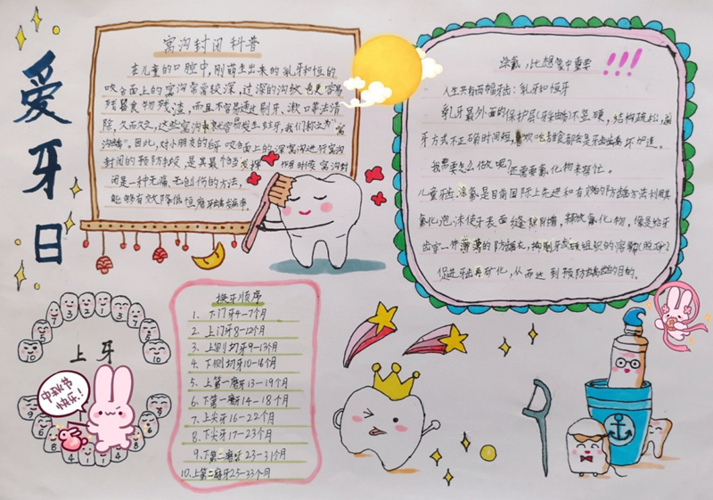 爱牙日
窝沟封闭科普
在儿童的口腔中,刚萌生出来的乳牙和恒的
咬合面上的窝沟常常较深,过深的沟纹
残留食物残渣,而且不容易通过刷牙、漱口等法清
除,久而久之,这些窝沟就容易发生蛀牙,我们称之为"窝
沟龋"。因此,对小朋友的 咬合面上的深窝沟进行窝沟
封闭的预防龋较,是其最个 作用时候窝沟封
闭是一种无痛、无创伤的方法,
能够有效降低恒磨牙
涂氟,比想象中重要!!!
人生共有两幅牙齿:乳牙和恒牙
乳牙最外面的保护层(牙釉质)不坚硬,结构疏松,
牙方式不正确时间短,喜欢吃甜食都会是牙齿
我需要怎么做呢? 还需要氟化物来帮忙。
儿童牙齿涂氟是目前国际上先进和有效的防龋方法利用其
氟化泡沫使牙表面 缝隙 释放氟化物,像是给牙
齿穿一件薄薄的防龋衣,
促进牙齿再矿化,从而达到预防龋齿的目的。
换牙顺序
1、下门牙4-7个月
2、上门牙8-12个月
3、上侧切牙9-13个月
4、下侧切牙10-16个月
5、上第一磨牙13-19个月
6、下第一磨牙14-18个月
7、上尖牙16-22个月
8、下尖牙17-23个月
9、下第二磨牙23-31个月
10、上第二磨牙25-33个月
上牙
中秋节
快乐!